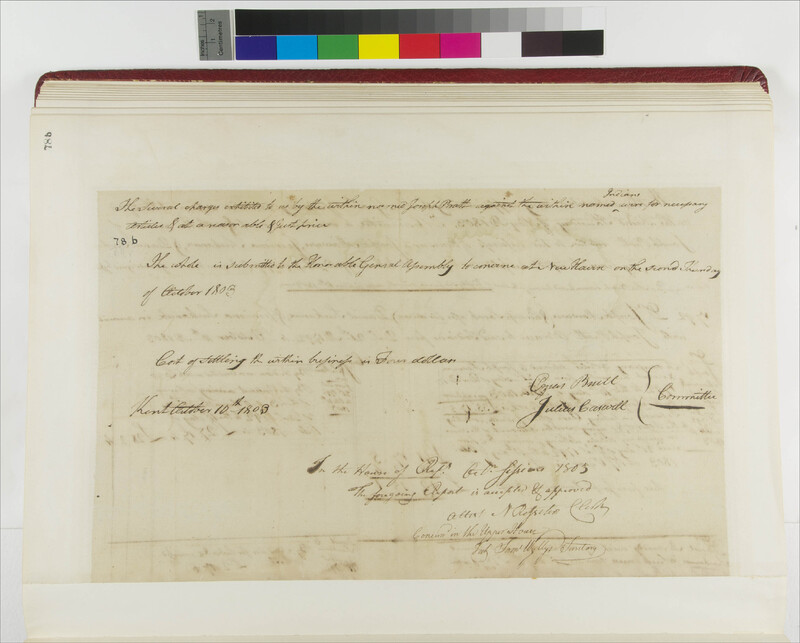 78b
Indians
The several charges exhibited to us by the within named Joseph Pratt against the within named were for necessary
articles & at a reasonable & just price
78, b
The whole is submitted to the Honorable General Assembly to convene at New Haven on the second Thursday
of October 1803
Cost of settling the within business is Four dollars
Kent October 10th 1803
Buell
Julius Caswell
Committee
In the House of Rep.s Oct. session 1803
The foregoing Report is accepted & approved
Attest N Clerk
Concurd in the Upper House
Test Saml Wyllys Secretary